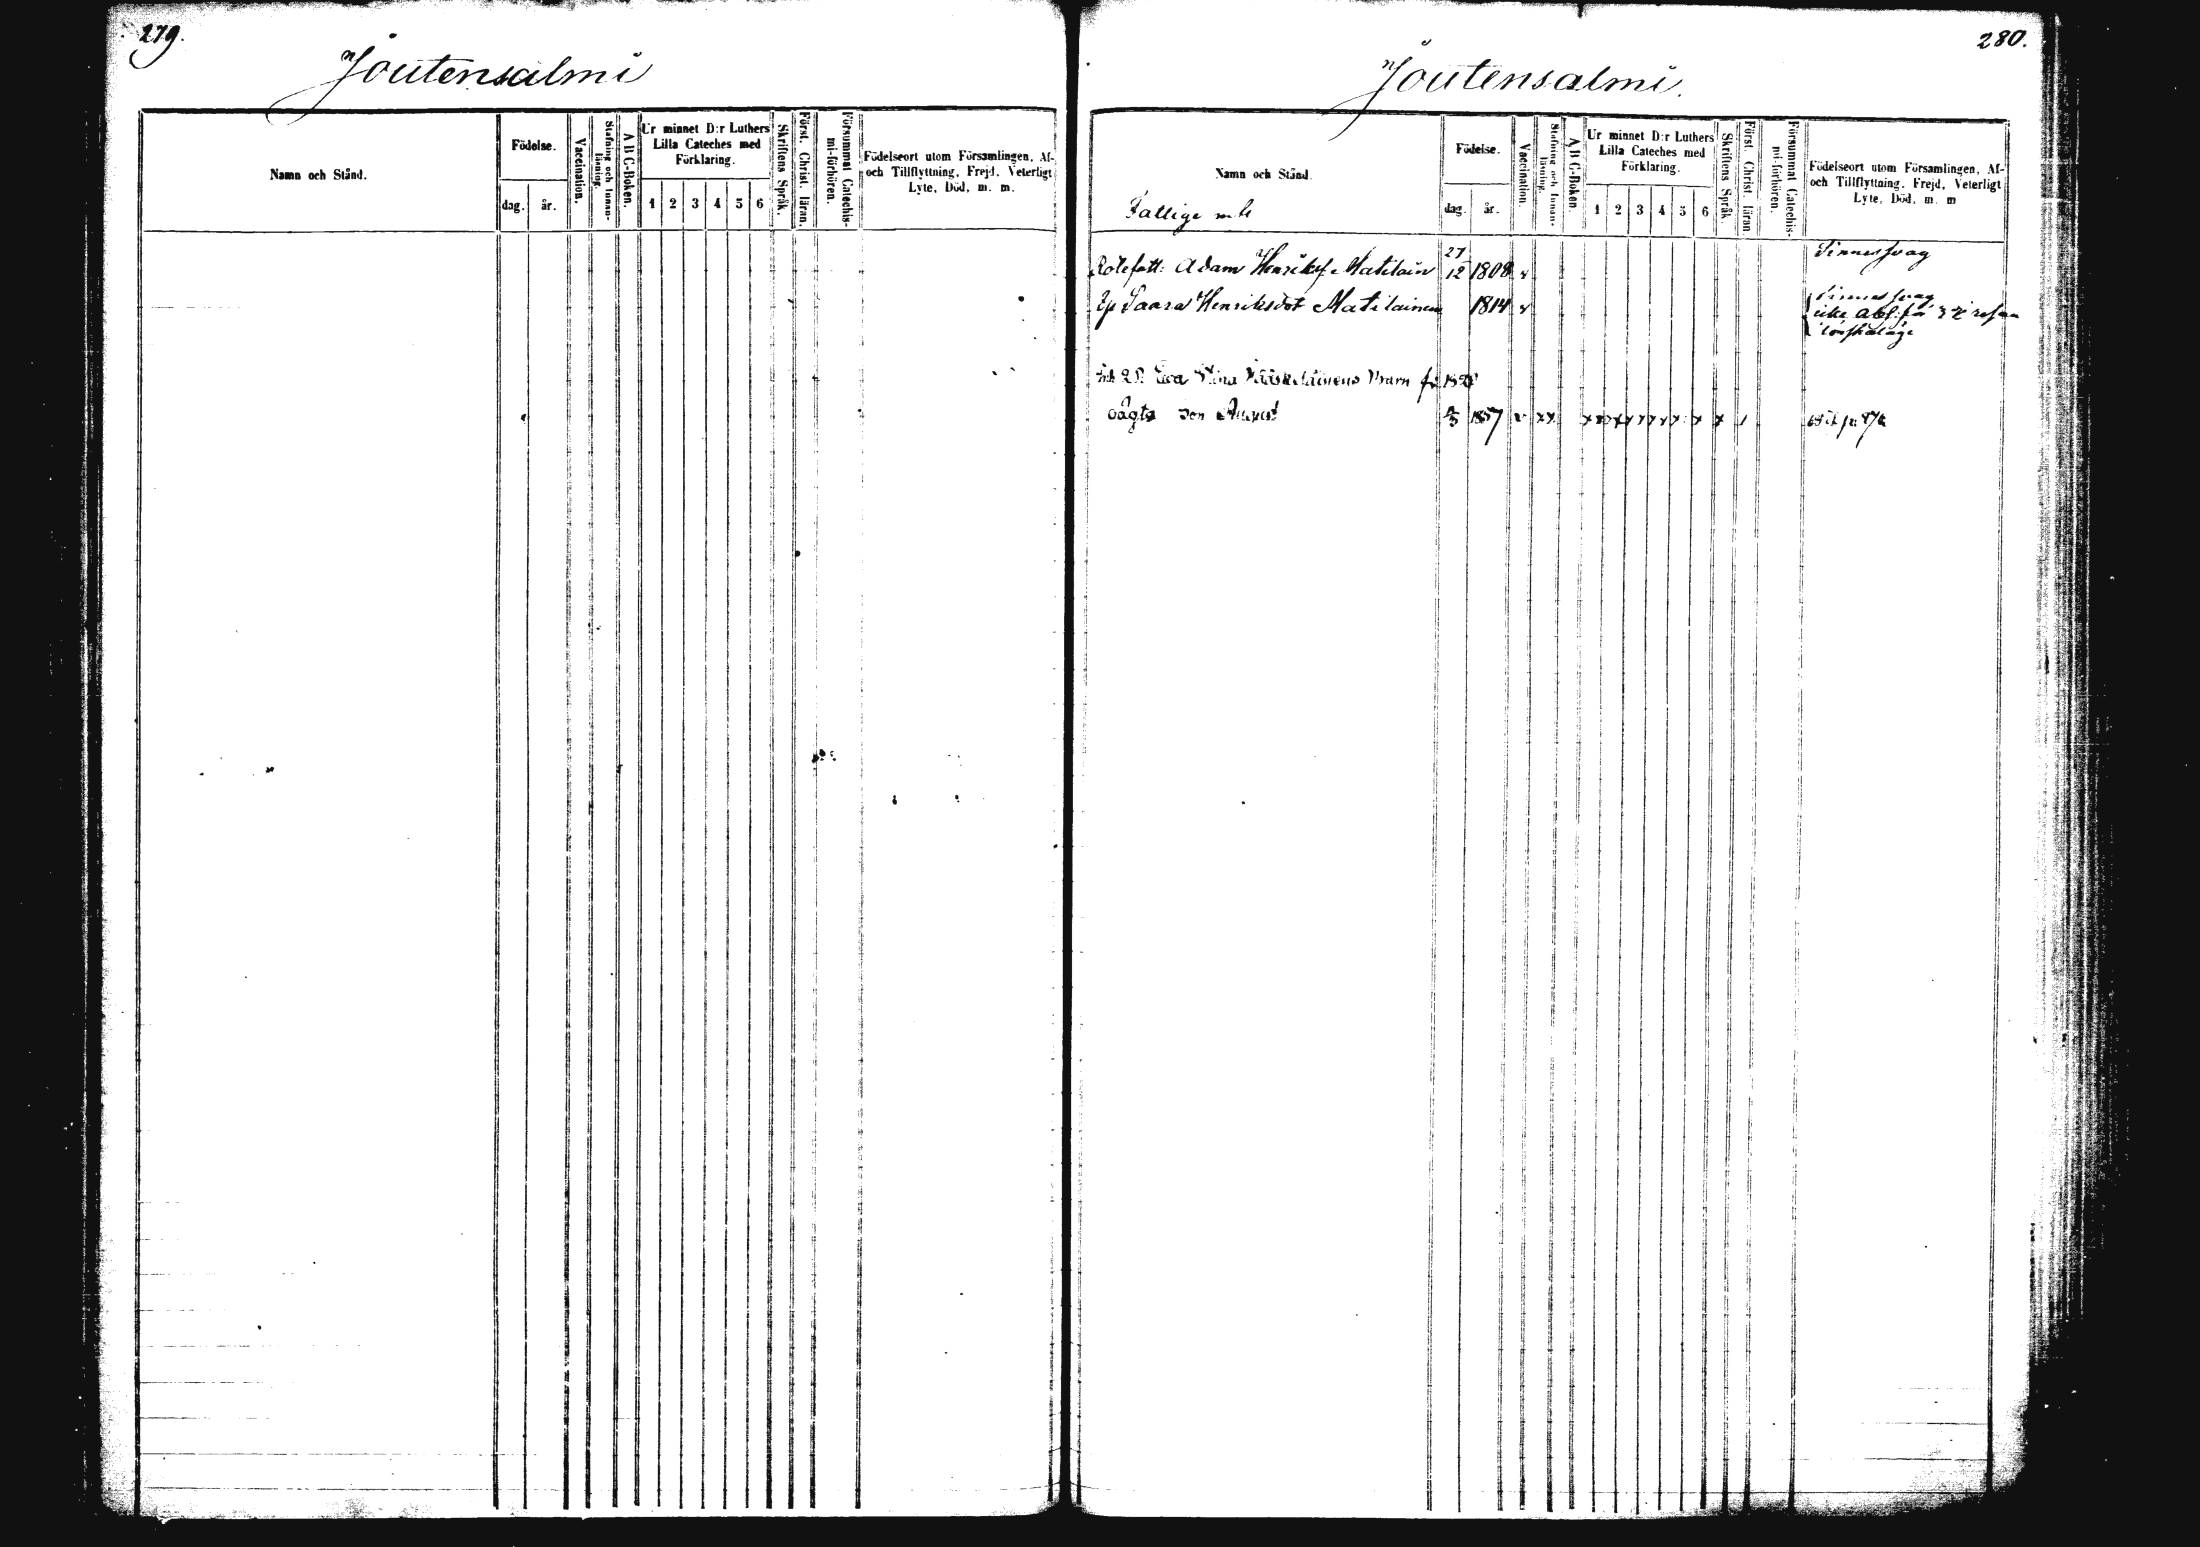 279.
Joutensalmi
Namn och Stånd.
Födelse.
dag.
år.
Vaccination.
Stafning och Innan-
läsning.
A B C-Boken.
Ur minnet D:r Luthers
Lilla Cateches med
Förklaring.
1 2 3 4 5 6
Skriftens Språk.
Först. Christ. läran.
Försummat Catechis-
mi-förhören.
Födelseort utom Församlingen, Af-
och Tillflyttning, Frejd, Veterligt
Lyte, Död, m. m.
280.
Joutensalmi.
Namn och Stånd.
Fattige
Födelse.
dag.
år.
Vaccination.
Stafning och Innan-
läsning.
A B C-Boken.
Ur minnet D:r Luthers
Lilla Cateches med
Förklaring.
1 2 3 4 5 6
Skriftens Språk.
Först. Christ. läran
Försummat Catechis-
mi-förhören.
Födelseort utom Församlingen, Af-
och Tillflyttning, Frejd, Veterligt
Lyte, Död, m. m
Rotefatt: Adam Henriks. Matilain 27/12 1808 v Sinnessvag
Saara Henriksdot Matilainen 1814 v Sinnessvag
Stina Kääskeläinens Barn
son August 1857 v xx